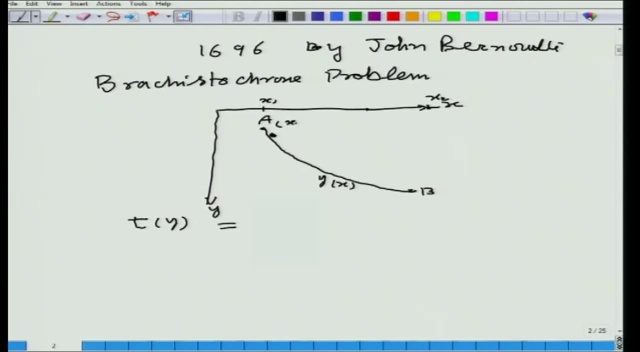 Edit View Insert Actions Tools Help
1696 by John Bernoulli
Brachistochrone Problem
x₁ x₂ x
A(x
y(x) B
y
t(y) =
2 / 25
2